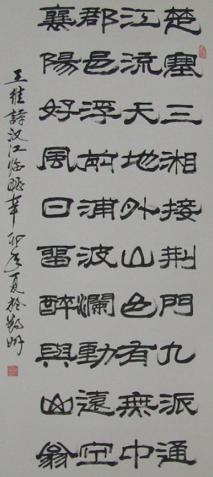 楚塞三湘接荆門九派通
江流天地外山色有無中
郡邑浮前浦波瀾動遠空
襄陽好風日留醉與山翁
王維詩汉江临眺辛卯年夏於郑州